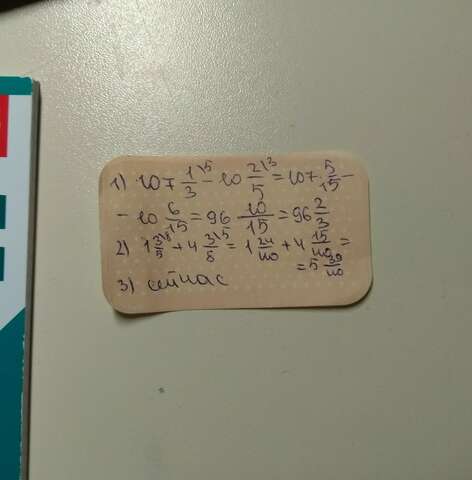 1) 107 1\5/3 - 10 2\3/5 = 107 5/15 -
- 10 6/15 = 96 10/15 = 96 2/3
2) 1 3\8/5 + 4 3\5/8 = 1 24/40 + 4 15/40 =
= 5 39/40
3) сейчас